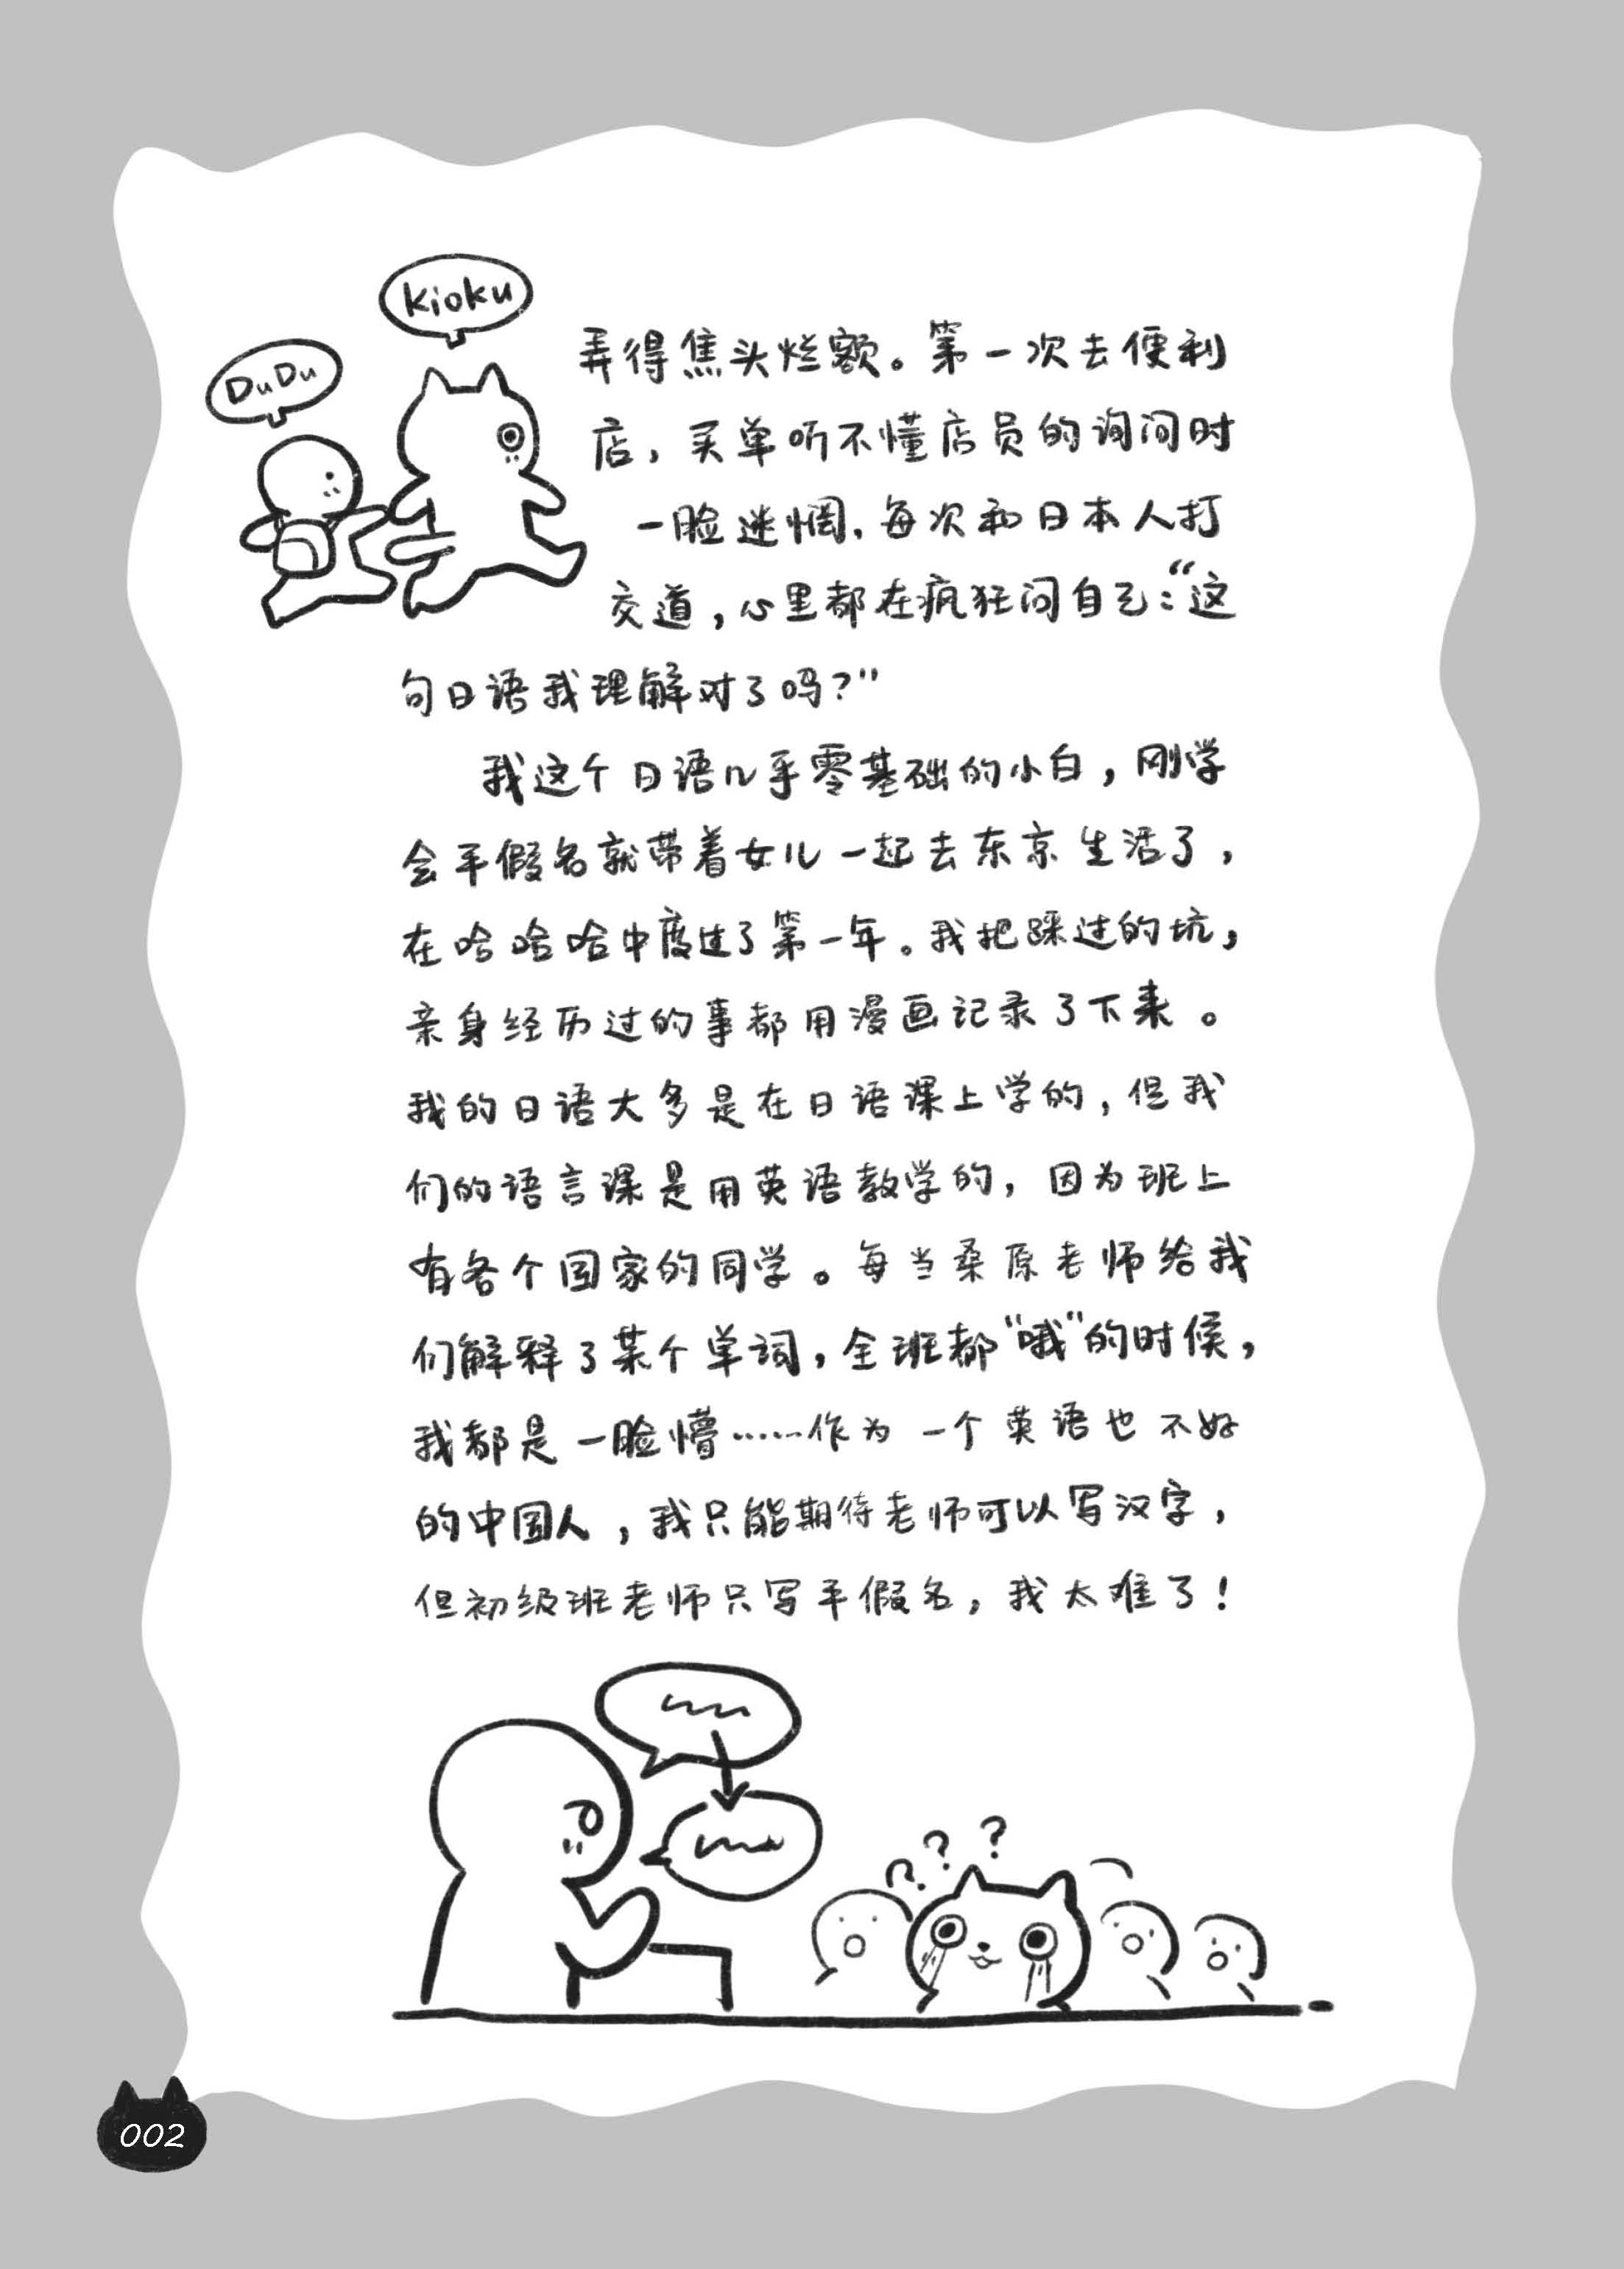 Kioku
DuDu
弄得焦头烂额。第一次去便利
店，买单听不懂店员的询问时
一脸迷惘，每次和日本人打
交道，心里都在疯狂问自己：“这
句日语我理解对了吗？”
我这个日语几乎零基础的小白，刚学
会平假名就带着女儿一起去东京生活了，
在哈哈哈中度过了第一年。我把踩过的坑，
亲身经历过的事都用漫画记录了下来。
我的日语大多是在日语课上学的，但我
们的语言课是用英语教学的，因为班上
有各个国家的同学。每当桑原老师给我
们解释了某个单词，全班都“哦”的时候，
我都是一脸懵……作为一个英语也不好
的中国人，我只能期待老师可以写汉字，
但初级班老师只写平假名，我太难了！
? ? ?
002